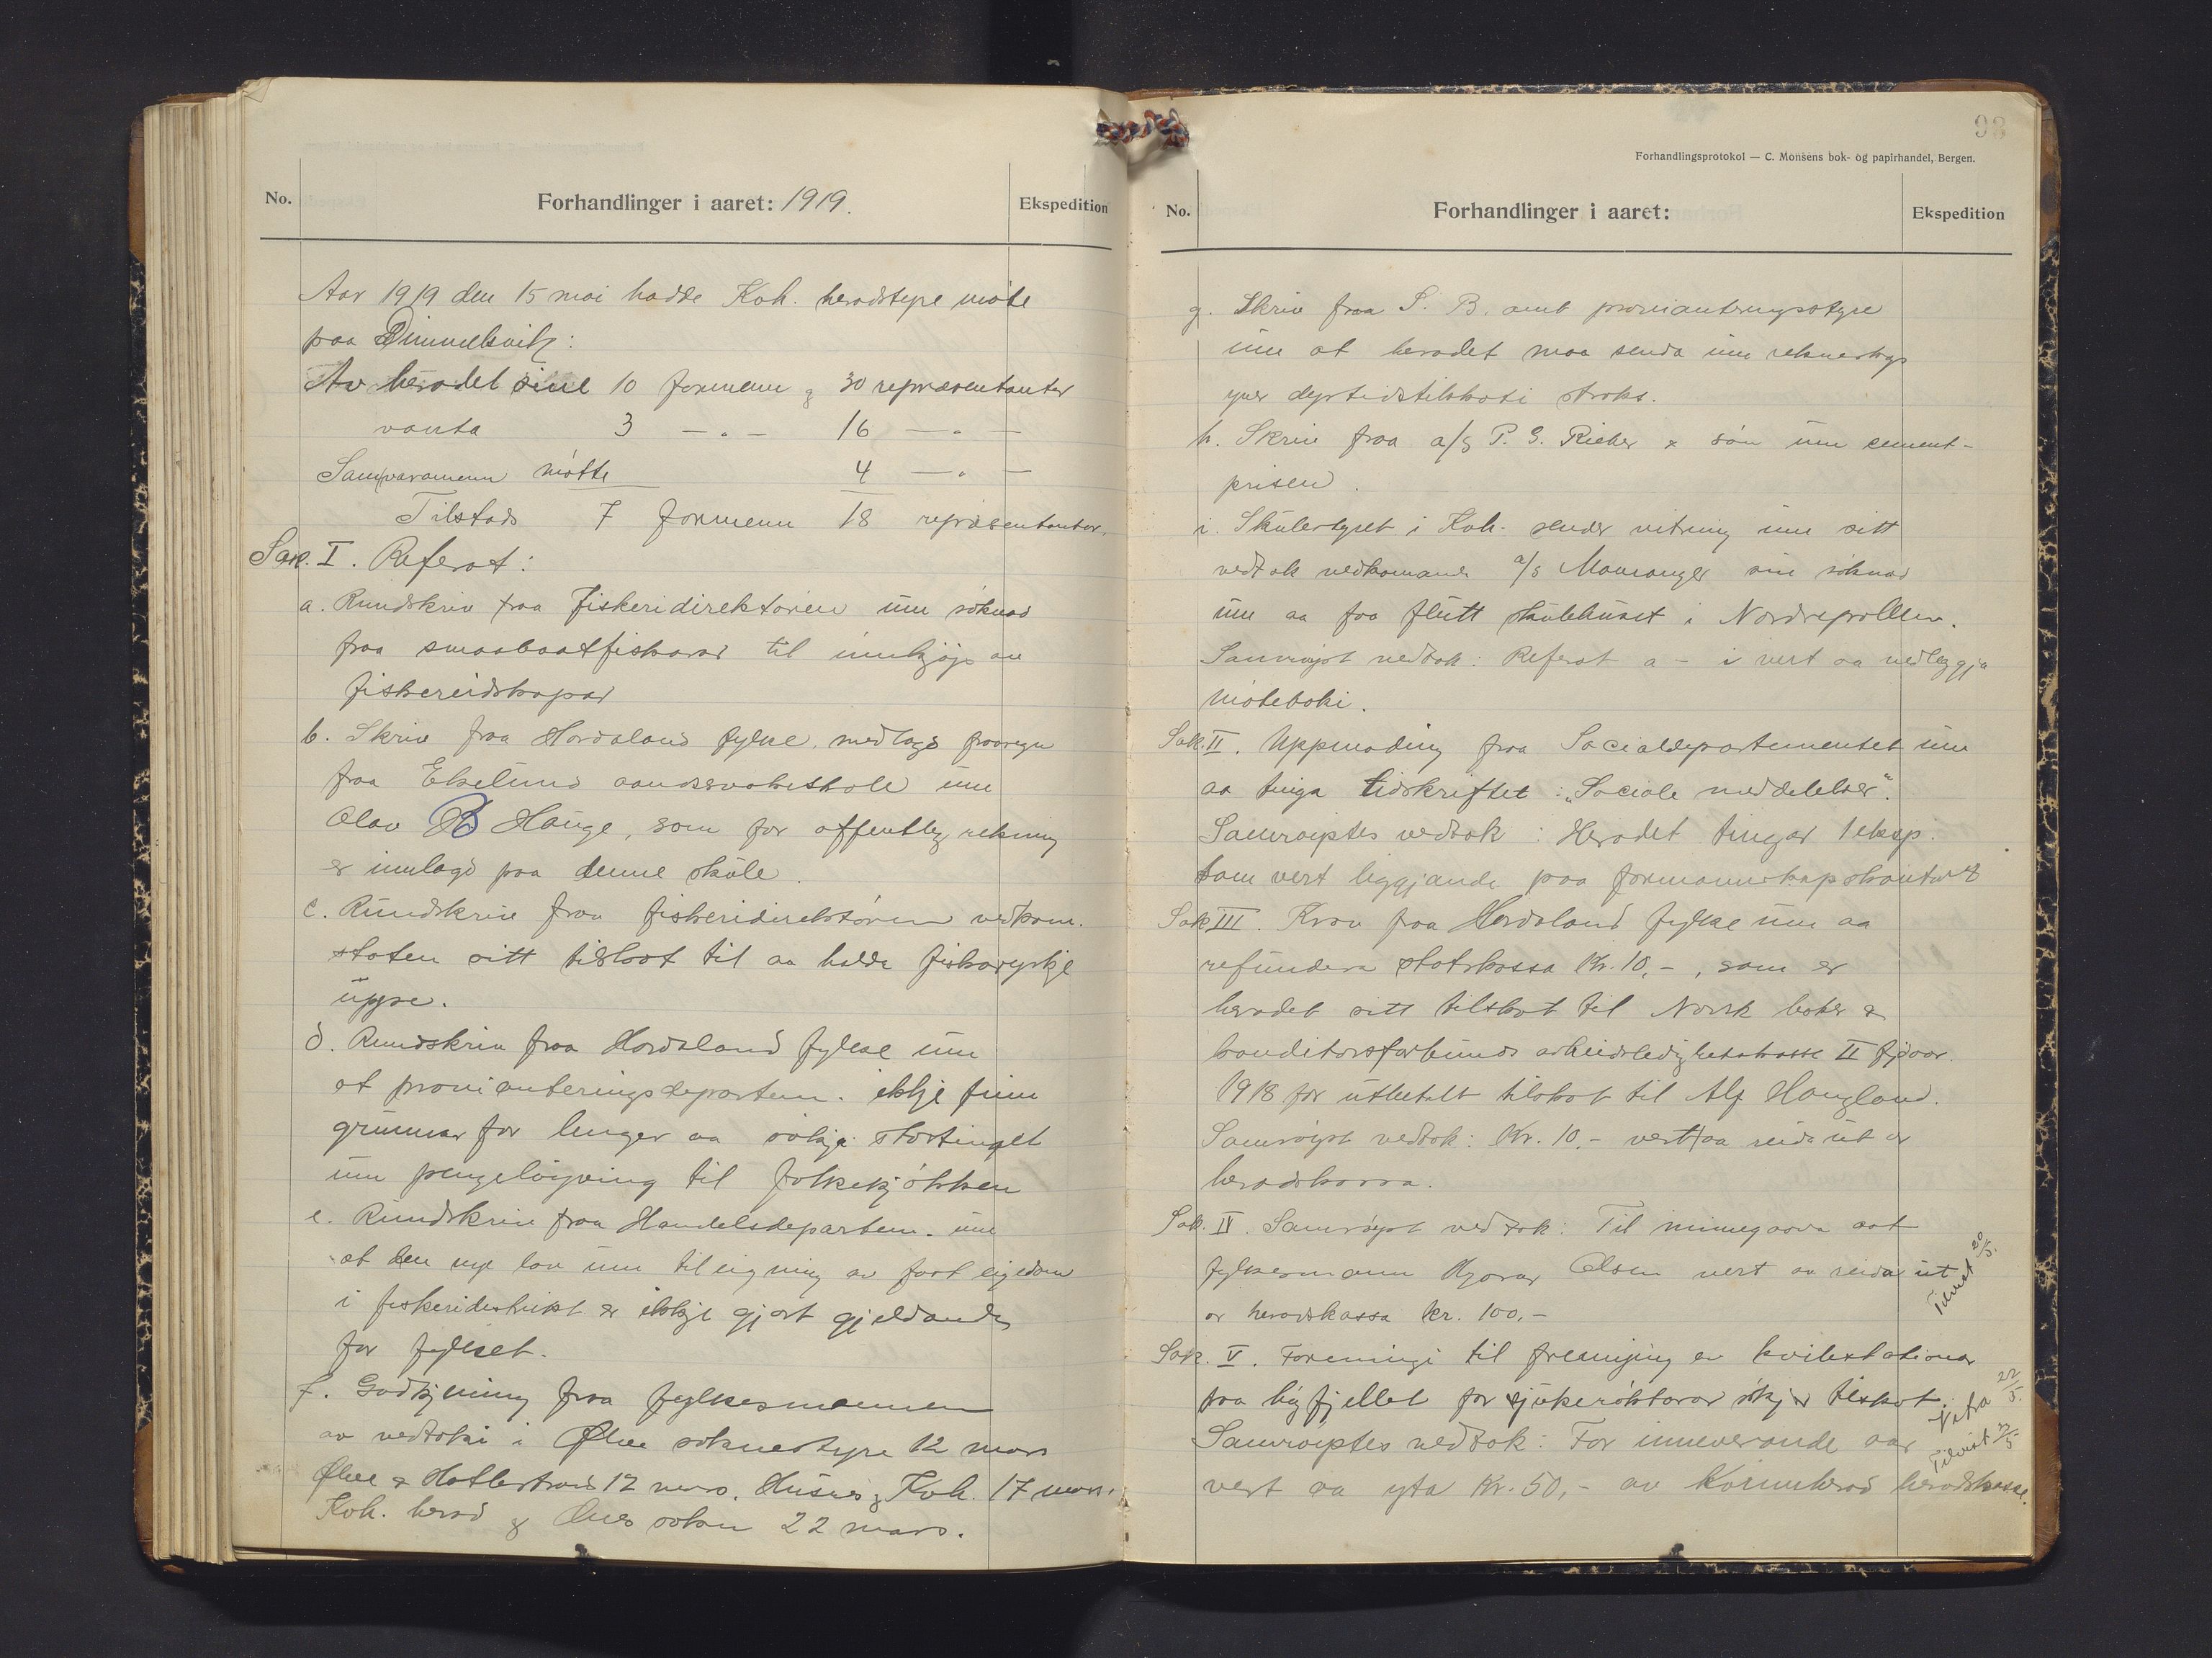 No.
Forhandlinger i aaret: 1919.
Ekspedition
Aar 1919 den 15 mai hadde Kvh. heradstyre møte
paa Dimmelsvik:
Av heradet sine 10 formenn og 30 repræsentanter
vanta 3 — " — 16 — " —
Samvaramenn møtte 4 — " —
Tilstads 7 formenn 18 repræsentanter.
Sak. I. Referat:
a. Rundskriv fraa Fiskeridirektøren um søknad
fraa smaabaatfiskarar til innkjøp av
fiskereidskapar
b. Skriv fraa Hordaland fylke, medlagd fraasegn
fraa Ekelund aandssvakeskole um
Olav Hauge, som for offentleg rekning
er innlagd paa denne skule.
c. Rundskriv fraa fiskeridirektøren vedkom.
staten sitt tilbod til aa halda fiskaryrkje
uppe.
d. Rundskriv fraa Hordaland fylke um
at provianteringsdepartem. ikkje finn
grunnar for lenger aa søkja stortinget
um pengeløyving til folkekjøkken
e. Rundskriv fraa Handelsdepartem. um
at den nye lov um tileigning av fast eigedom
i fiskeridistrikt er ikkje gjort gjeldande
for fylket.
f. Godkjenning fraa fylkesmannen
av vedtoki i Ølve soknestyre 12 mars
Ølve & Hatlestrand 12 mars. Husnes & Kvh. 17 mars.
Kvh. herad og Ølves sokn 22 mars.
93
Forhandlingsprotokol — C. Monsens bok- og papirhandel, Bergen.
No.
Forhandlinger i aaret:
Ekspedition
g. Skriv fraa S. B. amt provianteringsstyre
um at heradet maa senda inn rekneskap
yver dyrtidstilskot straks.
h. Skriv fraa a/s P. G. Rieber & søn um cement-
prisen.
i. Skulestyret i Kvh. sender vitring um sitt
vedtak vedkomande a/s Mauranger sin søknad
um aa faa flutt skulehuset i Nordrepollen.
Samrøyst vedtok: Referat a - i vert aa vedleggja
møteboki.
Sak. II. Uppmoding fraa Socialdepartementet um
aa tinga tidskriftet: „Sociale meddelelser".
Samrøystes vedtok: Heradet tingar 1 eksp.
som vert liggjande paa formannskapskontoret
Sak III. Krav fraa Hordaland fylke um aa
refundera statskassa Kr. 10,-, som er
heradet sitt tilskot til Norsk baker &
konditorforbunds arbeidsledighetskasse II fjoor.
1918 for utbetalt tilskot til Alf Haugland.
Samrøyst vedtok: Kr. 10.- vert aa reida ut or
heradskassa.
Sak. IV. Samrøyst vedtok: Til minnegaava aat
fylkesmann Hroar Olsen vert aa reida ut
or heradskassa kr. 100.-
Tilvist 20/5.
Sak. V. Foreningi til fremjing av kvilestationar
paa høgfjellet for sjukerøktarar søkjer tilskot.
Samrøystes vedtok: For inneverande aar
vert aa yta Kr. 50,- av Kvinnherad heradskasse.
22/5.
Tilvist 23/5